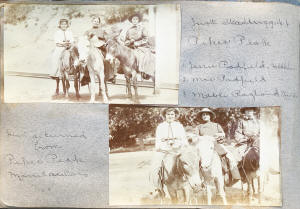 Just starting up
Pikes Peak
1 Jessie Padfield,
2 Mrs Padfield
3 Mabel Ragland
Just returned
from
Pikes Peak